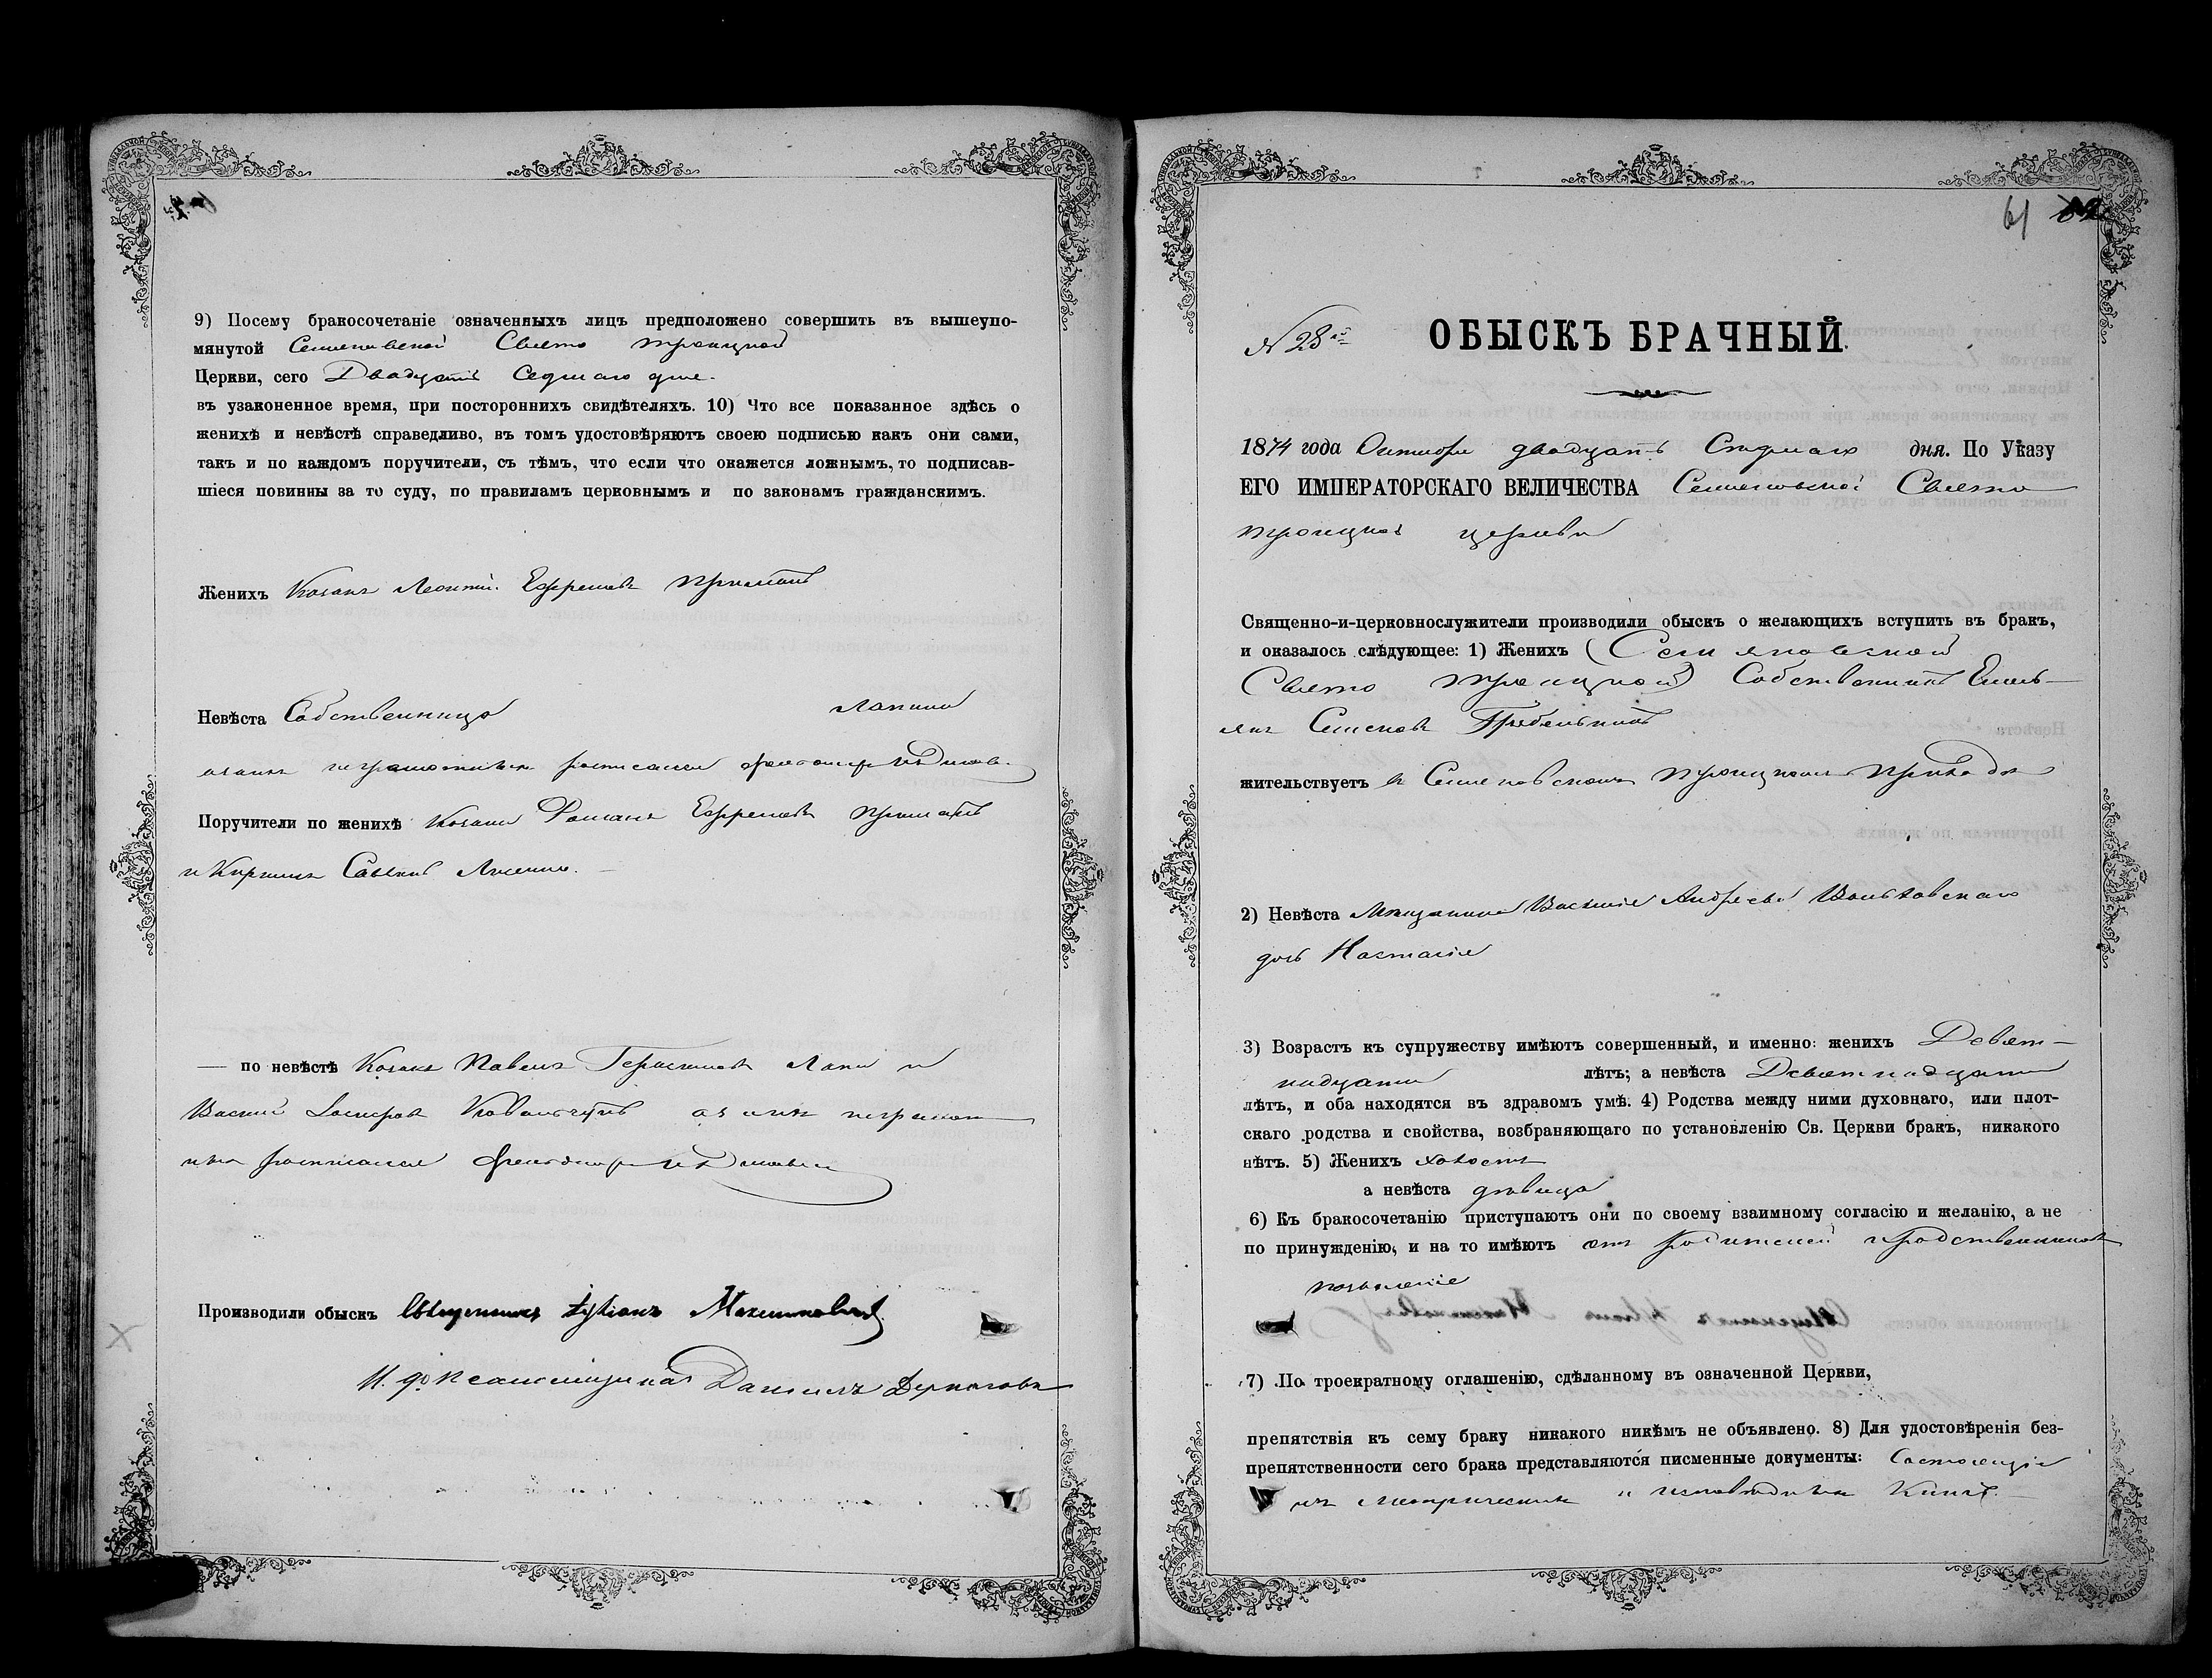 9) Посему бракосочетаніе означенныхъ лицъ предположено совершить въ вышеупо-
мянутой Семеновской Свято Троицкой
Церкви, сего Двадцать Седмаго дня.
въ узаконенное время, при постороннихъ свидѣтеляхъ. 10) Что все показанное здѣсь о
женихѣ и невѣстѣ справедливо, въ томъ удостовѣряютъ своею подписью какъ они сами,
такъ и по каждомъ поручители, съ тѣмъ, что если что окажется ложнымъ, то подписав-
шіеся повинны за то суду, по правиламъ церковнымъ и по законамъ гражданскимъ.
Женихъ Козакъ Леонтій Ефремовъ
Невѣста Собственница
Поручители по женихѣ Козаки Романъ Ефремовъ
и Кириллъ
— по невѣстѣ Козакъ Павелъ Герасимовъ и
Производили обыскъ Священникъ Максимовичъ
И. д. псаломщика Даніилъ
61
№ 28й
ОБЫСКЪ БРАЧНЫЙ.
1874 года Октября двадцать Седмаго дня. По Указу
ЕГО ИМПЕРАТОРСКАГО ВЕЛИЧЕСТВА Семеновской Свято
Троицкой церкви
Священно-и-церковнослужители производили обыскъ о желающихъ вступить въ бракъ,
и оказалось слѣдующее: 1) Женихъ (Семяновской
Свято Троицкой) Собственникъ Емель-
янъ Семеновъ
жительствуетъ въ Семеновскомъ Троицкомъ Приходѣ
2) Невѣста Мѣщанина Василія Андреева
дочь Настасія
3) Возрастъ къ супружеству имѣютъ совершенный, и именно: женихъ Девят-
надцати лѣтъ; а невѣста Девятнадцати
лѣтъ, и оба находятся въ здравомъ умѣ. 4) Родства между ними духовнаго, или плот-
скаго родства и свойства, возбраняющаго по установленію Св. Церкви бракъ, никакого
нѣтъ. 5) Женихъ холостъ
а невѣста дѣвица
6) Къ бракосочетанію приступаютъ они по своему взаимному согласію и желанію, а не
по принужденію, и на то имѣютъ отъ родителей и родственниковъ
позволеніе
7) По троекратному оглашенію, сдѣланному въ означенной Церкви,
препятствія къ сему браку никакого никѣмъ не объявлено. 8) Для удостовѣренія без-
препятственности сего брака представляются писменные документы: Состоящіе
въ метрическихъ и исповѣдныхъ Книгъ.